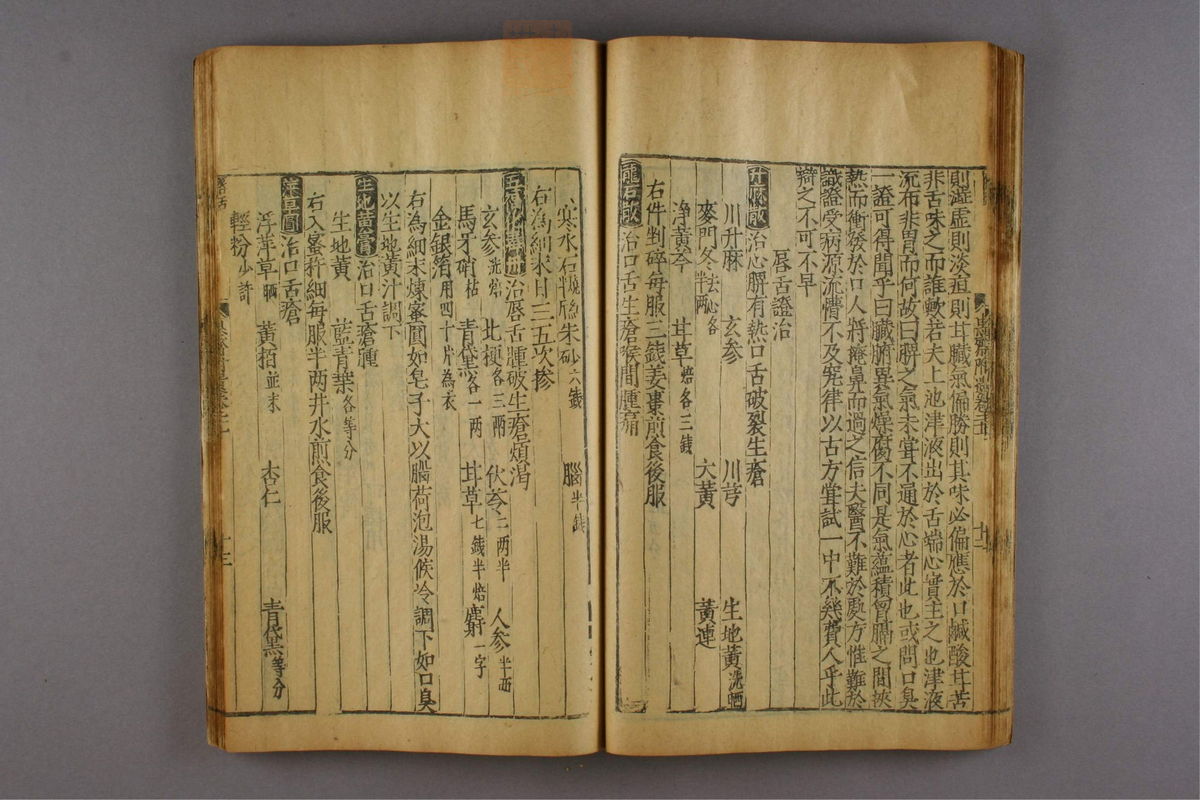 則澀虛則淡疸則甘臟氣偏勝則其味必偏應於口鹹酸甘苦
非舌味之而誰歟若夫上池津液出於舌端心實主之也津液
流布非胃而何故曰脾之氣未甞不通於心者此也或問口臭
一證可得聞乎曰臟腑異氣燥腐不同是氣蘊積胷膈之間挾
熱而衝發於口人將掩鼻而過之信夫醫不難於處方惟難於
識證受病源流懵不及究律以古方甞試一中不幾費人乎此
辯之不可不早
唇舌證治
升麻散 治心脾有熱口舌破裂生瘡
川升麻 玄參 川芎 生地黃洗晒
麥門冬去心各半兩 大黃 黃連
淨黃芩 甘草焙各三錢
右件剉碎每服三錢姜棗煎食後服
龍石散 治口舌生瘡喉間腫痛
寒水石燒半斤 朱砂六錢 腦半錢
右為細末日三五次摻
治唇舌腫破生瘡煩渴
玄參洗焙 北梗各三兩 伏苓二兩半 人參半兩
馬牙硝枯 青黛各一兩 甘草七錢半焙 麝一字
金銀箔用四十片為衣
右為細末煉蜜圓如皂子大以腦荷泡湯候冷調下如口臭
以生地黃汁調下
生地黃膏 治口舌瘡腫
生地黃 藍青葉各等分
右入蜜杵細每服半兩井水煎食後服
治口舌瘡
浮萍草晒 黃栢並末 杏仁 青黛等分
輕粉少許